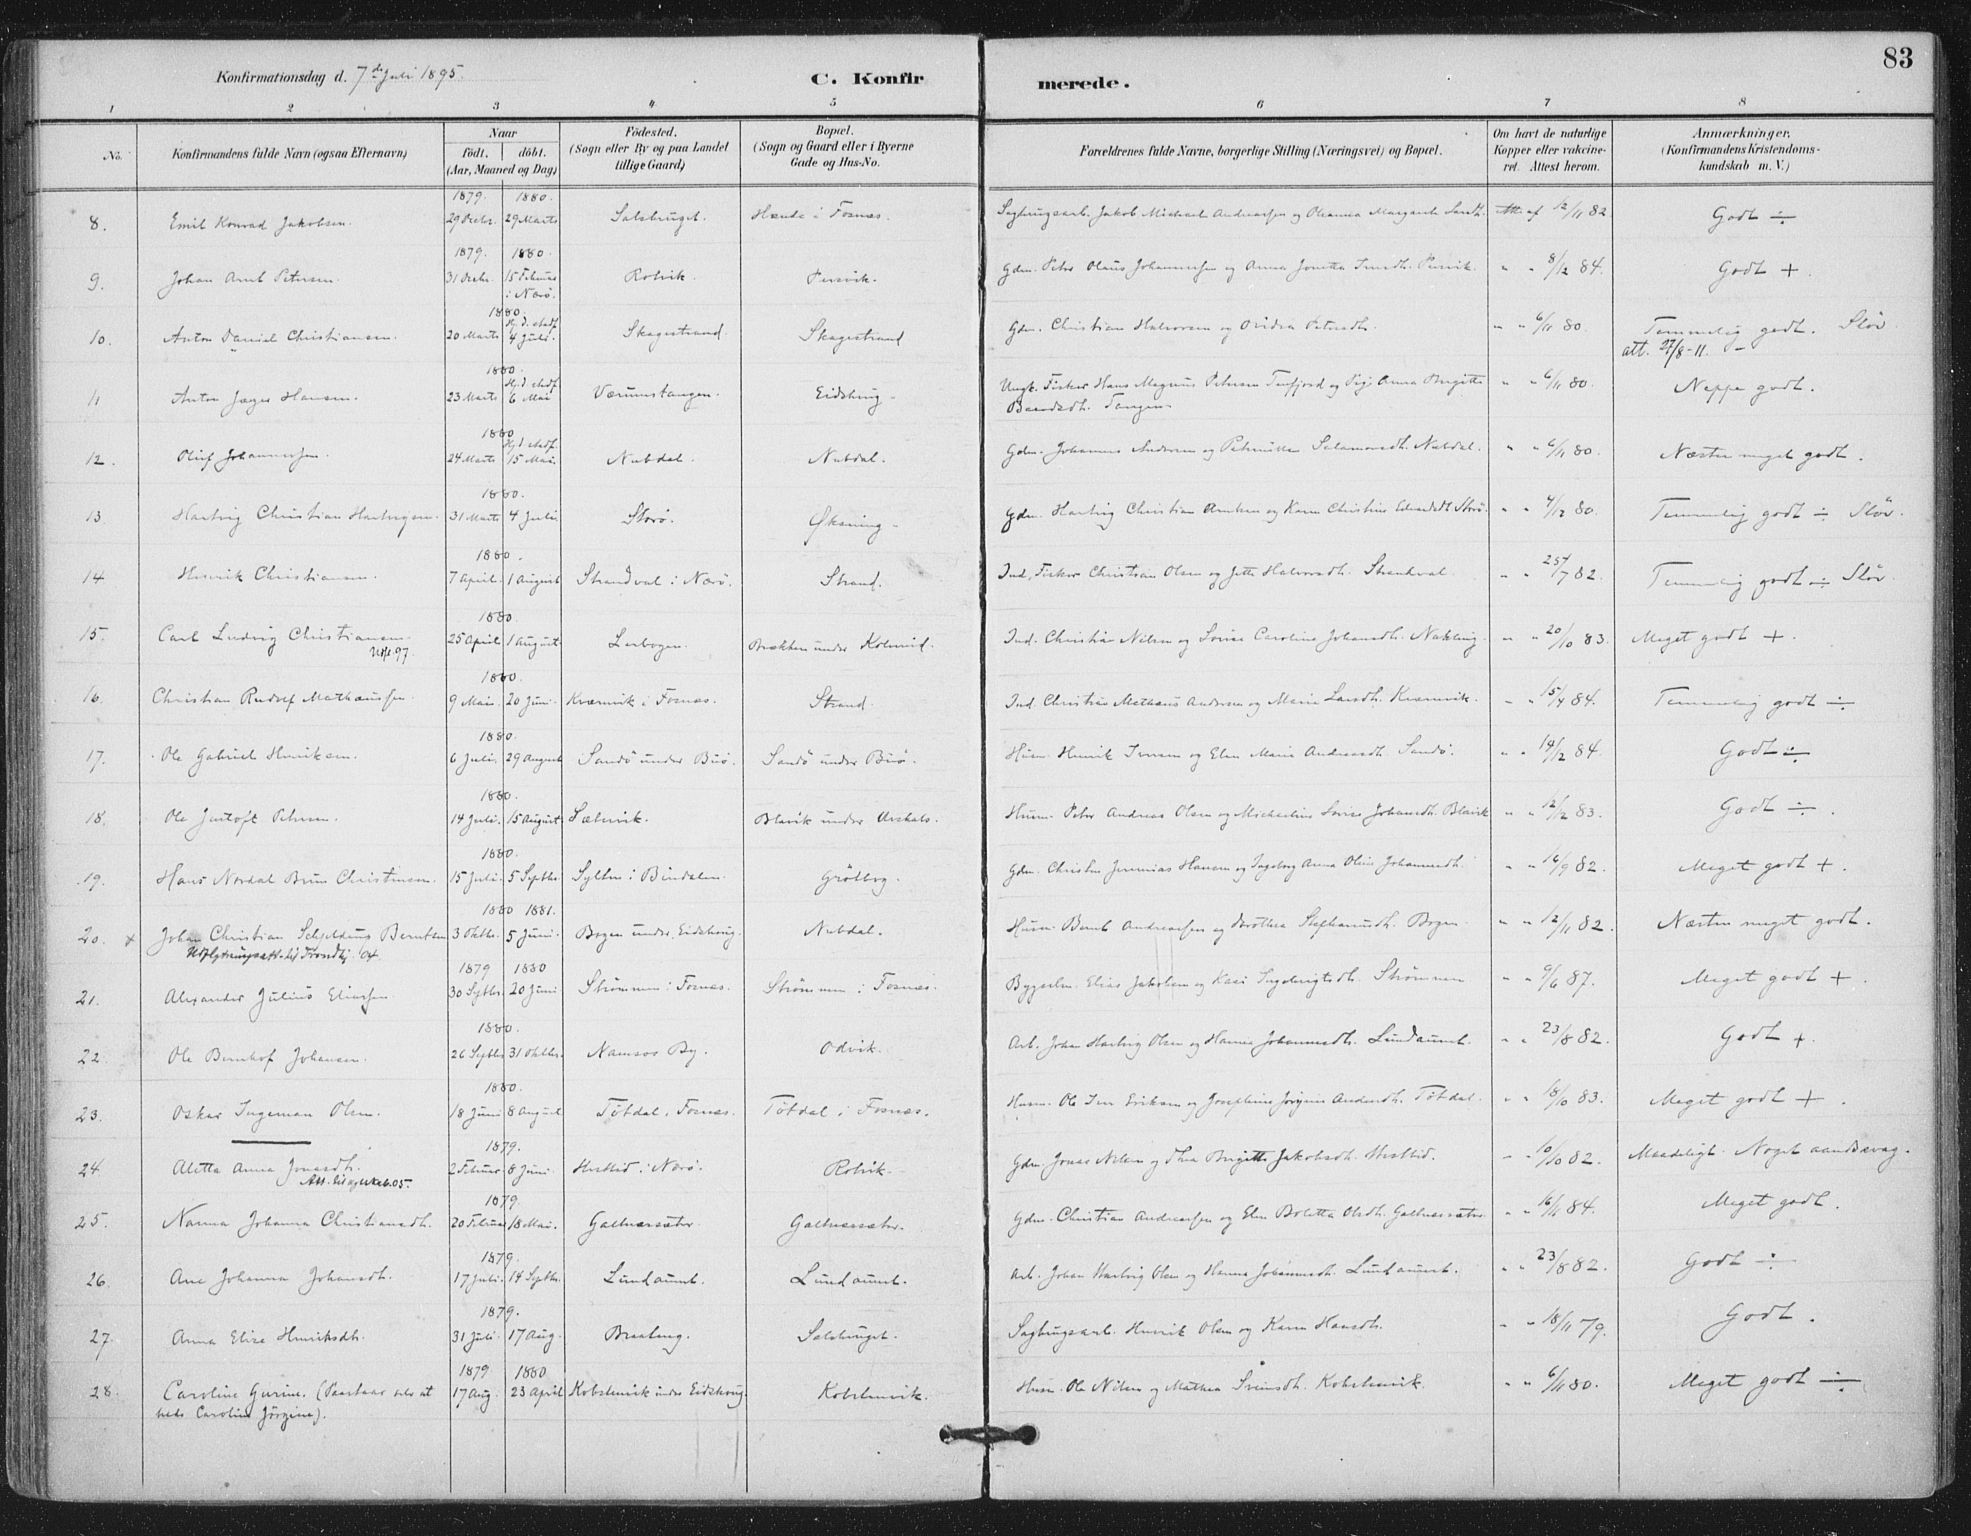 83
Konfirmationsdag d. 7de Juli 1895.
C. Konfirmerede.
1 2 3 4 5 6 7 8
No.
Konfirmandens fulde Navn (ogsaa Efternavn)
Naar
födt. döbt.
(Aar, Maaned og Dag)
Födested.
(Sogn eller By og paa Landet
tillige Gaard)
Bopæl.
(Sogn og Gaard eller i Byerne
Gade og Hus-No.
Forældrenes fulde Navne, borgerlige Stilling (Næringsvei) og Bopæl.
Om havt de naturlige
Kopper eller vakcine-
ret. Attest herom.
Anmærkninger,
(Konfirmandens Kristendoms-
kundskab m. V.)
1879. 1880.
8. Emil Konrad Jakobsen. 29 Decbr. 29 Marts Salsbruget. i Fosnæs. Sagbrugsarb. Jakob Michael Andreassen og Margrete 12/11 82 Godt ÷
1879. 1880.
9. Johan Arnt Petersen. 31 Decbr. 15 Februar Rotvik. Pervik. Gdm. Peter Olaus Johannessen og Anna Jonetta Pervik. " " 8/12 84. Godt +
i Nærö.
1880.
Hj. d. stadf.
10. Anton Daniel Christiansen. 20 Marts 4 Juli. Skagestrand. Skagestrand Gdm. Christian Halvorsen og Petersdt. " " 6/11 80. Temmelig godt. Slöv.
att. 27/8-11.
1880.
Hj. d. stadf.
11 Anton Jæger Hansen. 23 Marts 6 Mai Værumstangen. Eidshaug Ungk. Fisker Hans Magnus Petersen Terfjord og Pige Anna Birgitte " " 6/11 80. Neppe godt.
Tangen.
1880
Hj. d. stadf.
12. Oluf Johannessen. 24 Marts 15 Mai. Nubdal. Nubdal. Gdm. Johannes Andersen og Petrnille Salamonsdt. Nubdal. " " 6/11 80. Næsten meget godt.
1880.
13 Hartvig Christian Hartvigsen. 31 Marts 4 Juli Storö. Øksning Gdm. Hartvig Christian og Karen Christine Edvardsdt. Storö. " " 4/12 80. Temmelig godt ÷ Slöv.
1880.
14 Henrik Christiansen. 7 April. 1 August Strandval i Nærö. Strand. Ind. Fisker Christian Olsen og Jette Halvorsdt. Strandval. " " 25/7 82. Temmelig godt ÷ Slöv.
1880.
15. Carl Ludvig Christiansen. 25 April 1 August Lerbogen. Brækken under Kolvereid. Ind. Christian Nilsen og Lovise Caroline Johansdt. " " 20/10 83. Meget godt +.
97.
1880.
16. Christian Rudolf Mathæussen. 9 Mai. 20 Juni. Kværnvik i Fosnæs. Strand. Ind. Christian Mathæus Andersen og Marie Larsdt. Kværnvik. " " 15/4 84. Temmelig godt ÷
1880.
17. Ole Gabriel Henriksen. 6 Juli. 29 August Sandö under Buö. Sandö under Buö. Husm. Henrik Iversen og Elen Marie Andreasdt. Sandö. " " 14/12 84. Godt ÷
1880.
18. Ole Justoft Petersen. 14 Juli. 15 August Sætervik. Blavik under Arshals. Husm. Peter Andreas Olsen og Michaeline Lovise Johansdt. Blavik " " 12/12 83. Godt ÷.
1880.
19. Hans Nordal Brun Christensen. 15 Juli. 5 Septbr. i Bindalen. Grötberg. Gdm. Christen Jeremias Hansen og Ingeborg Anna Oline Johannesdt. " " 16/9 82. Meget godt +.
1880 1881.
20. x Johan Christian Scheldrus Berntsen 3 Oktbr. 5 Juni. Bogen under Eidshaug. Nubdal. Husm. Bernt Andreassen og Dorothea Steffensdt. Bogen. " " 12/11 82. Næsten meget godt.
Udflytningsatt. til Trondhj. 04
1879 1880
21. Alexander Julius Eliassen. 30 Septbr. 20 Juni Strömmen i Fosnæs. Strömmen i Fosnæs. Elias Jakobsen og Kari Ingebrigtsdt. Strömmen " " 9/6 87. Meget godt +.
1880.
22. Ole Bernhof Johansen. 26 Septbr. 31 Oktbr. Namsos By. Odvik. Arb. Johan Hartvig Olsen og Hanna Johannesdt. Lundaunet. " " 23/8 82. Godt +.
1880.
23. Oskar Ingeman Olsen. 18 Juni 8 August Tötdal i Fosnæs. Tötdal i Fosnæs. Husm. Ole Iver Eriksen og Josephine Jörgine Andersdt. Tötdal. " " 18/10 83. Meget godt +.
1879.
24. Aletta Anna Jonasdt. 2 Februar 8 Juni. i Nærö. Rotvik. Gdm. Jonas Nilsen og Thea Birgitte Jakobsdt. " " 10/10 82. Maadeligt. Noget aandssvag.
05.
1879.
25. Nanna Johanna Christiansdt. 20 Februar 18 Mai. Galtnessæter. Galtnessæter. Gdm. Christian Andreassen og Elen Boletta Olsdt. Galtnessæter. " " 16/11 84. Meget godt.
1879.
26. Ane Johanna Johansdt. 17 Juli. 14 Septbr. Lundaunet. Lundaunet. Arb. Johan Hartvig Olsen og Hanna Johannesdt. Lundaunet. " " 23/8 82. Godt ÷
1879.
27. Anna Elise Henriksdt. 31 Juli. 17 Aug. Salsbruget. Sagbrugsarb. Henrik Olsen og Karen Hansdt. " " 18/11 79. Godt.
1879 1880
28. Caroline Gurine. (Paastaar selv at 17 Aug. 23 April Kobstenvik under Eidshaug. Kobstenvik. Husm. Ole Nilsen og Mathea Svensdt. Kobstenvik. " " 6/11 80. Meget godt ÷
hede Caroline Jörgine).